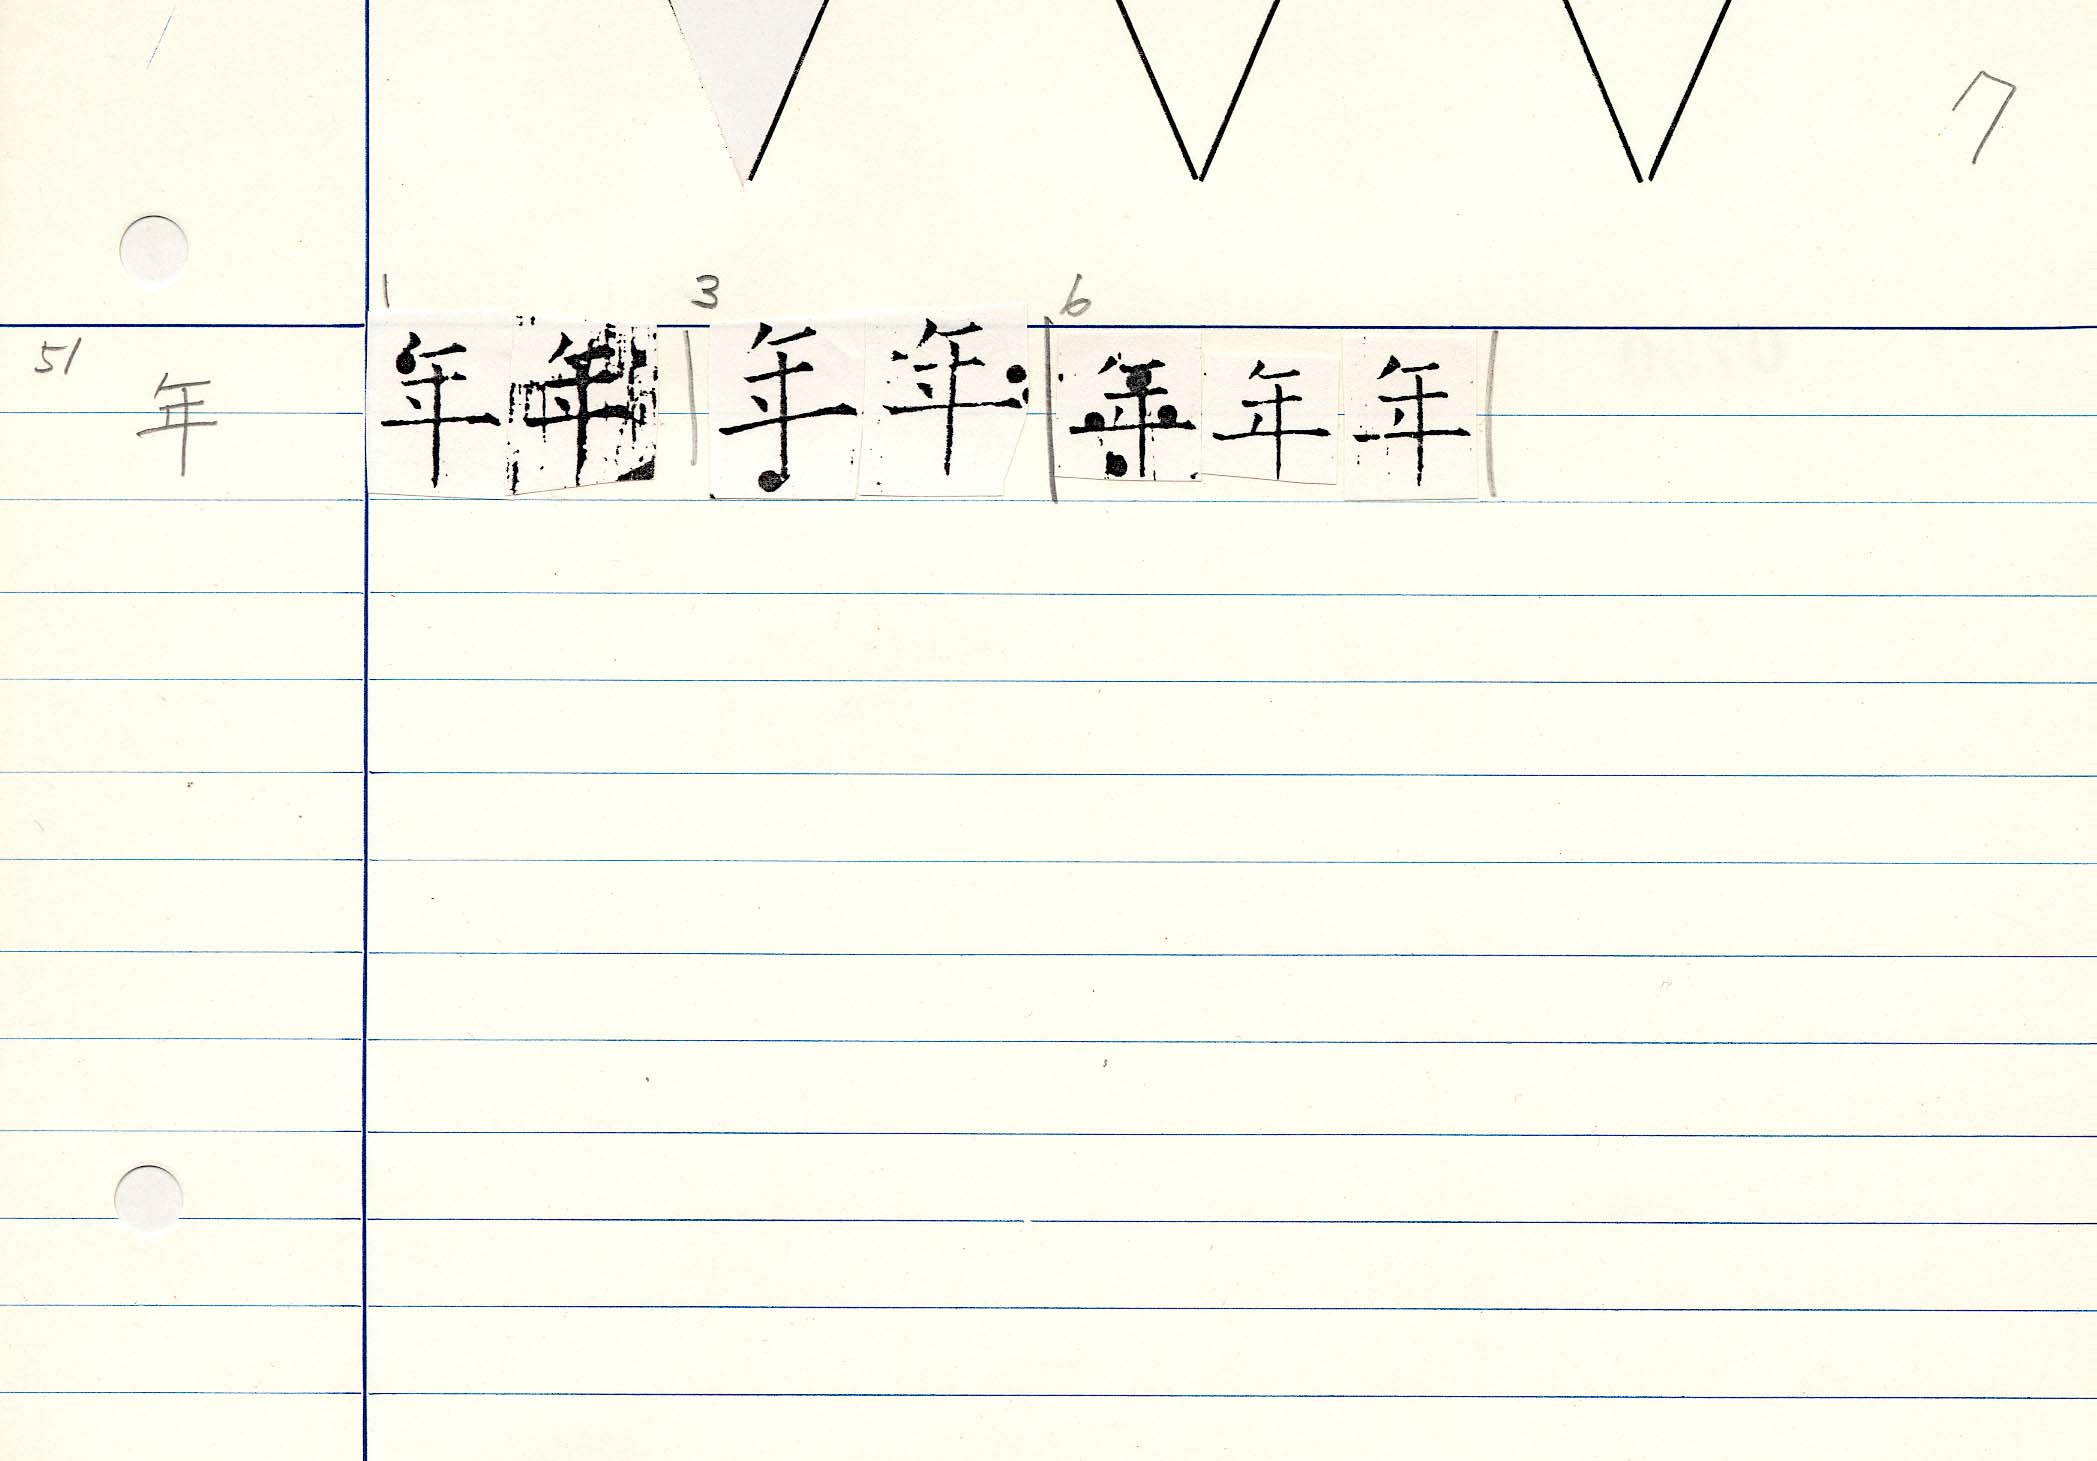 7
1 3 6
51 年 年年年年年年年